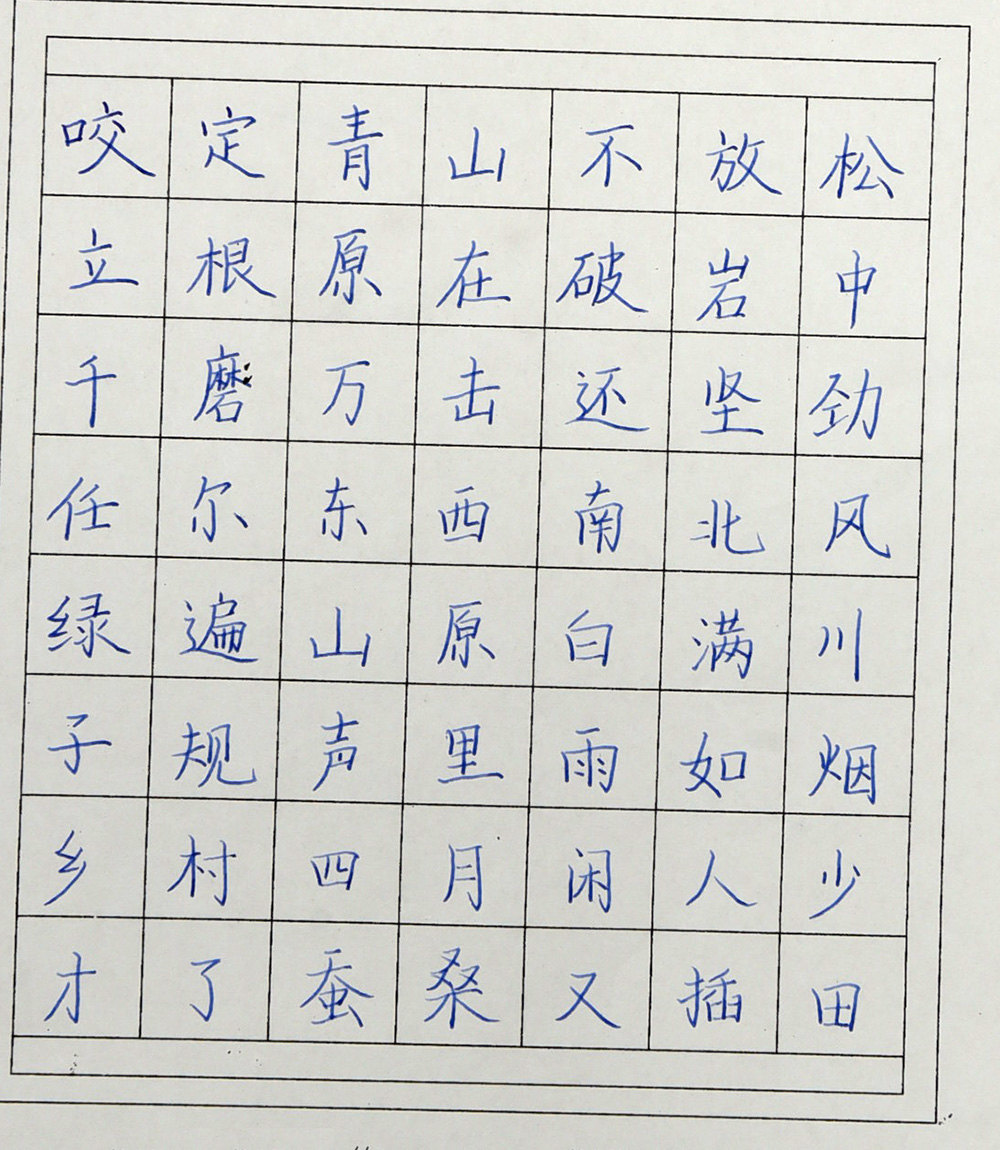 咬定青山不放松
立根原在破岩中
千磨万击还坚劲
任尔东西南北风
绿遍山原白满川
子规声里雨如烟
乡村四月闲人少
才了蚕桑又插田